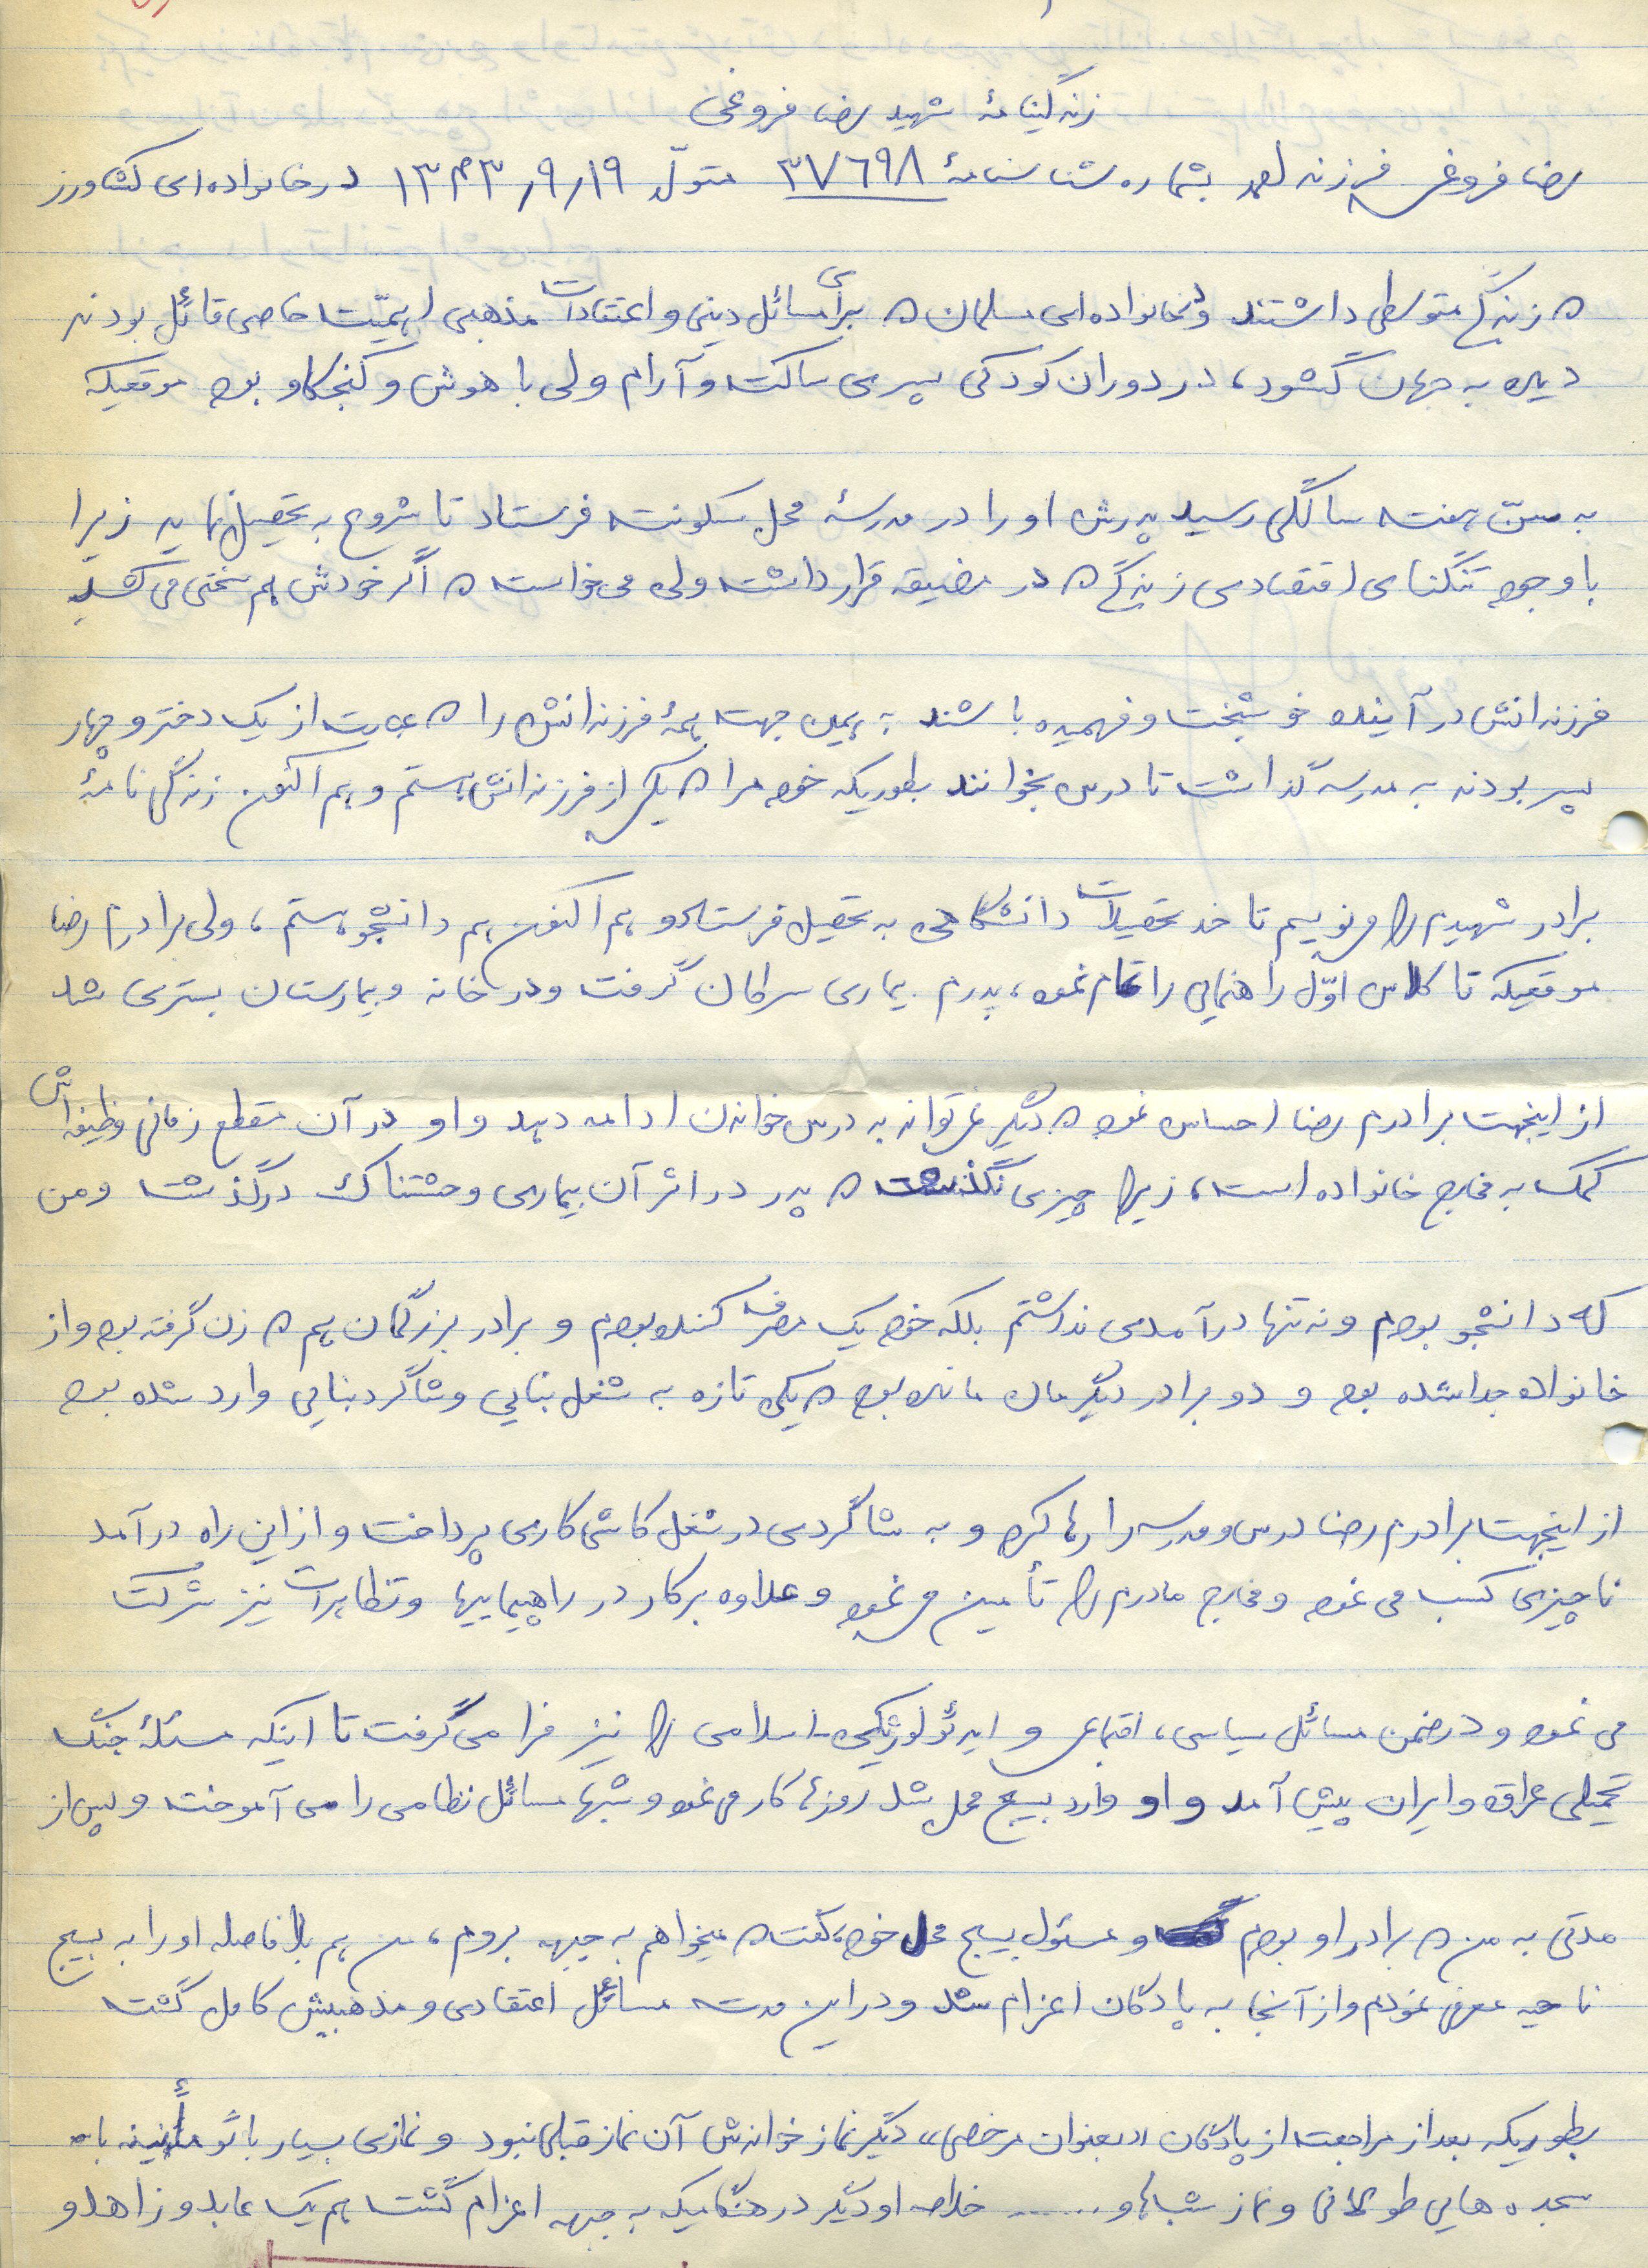 زندگینامهٔ شهید رضا فروغی
رضا فروغی فرزند احمد بشماره شناسنامهٔ ۳۷۶۹۸ متولّد ۱۳۴۳٫۹٫۱۹ در خانواده‌ای کشاورز
که زندگی متوسطی داشتند و خانواده‌ای مسلمان که برای مسائل دینی و اعتقادات مذهبی اهمیّت خاصی قائل بودند
دیده به جهان گشود، در دوران کودکی پسری ساکت و آرام ولی با هوش و کنجکاو بود موقعیکه
به سنّ هفت سالگی رسید پدرش او را در مدرسهٔ محل سکونت فرستاد تا شروع به تحصیل نماید زیرا
با وجود تنگنای اقتصادی زندگی که در مضیقه قرار داشت ولی می‌خواست که اگر خودش هم سختی می‌کشد
فرزندانش در آینده خوشبخت و فهمیده باشند به همین جهت همهٔ فرزندانش را که عبارت از یک دختر و چهار
پسر بودند به مدرسه گذاشت تا درس بخوانند بطوریکه خود مرا که یکی از فرزندانش هستم و هم اکنون زندگی نامهٔ
برادر شهیدم را می‌نویسم تا حد تحصیلات دانشگاهی به تحصیل فرستاد و هم اکنون هم دانشجو هستم، ولی برادرم رضا
موقعیکه تا کلاس اوّل راهنمایی را تمام نمود، پدرم بیماری سرطان گرفت و در خانه و بیمارستان بستری شد
از اینجهت برادرم رضا احساس نمود که دیگر نمی‌تواند به درس خواندن ادامه دهد و او در آن مقطع زمانی وظیفه‌اش
کمک به مخارج خانواده است، زیرا چیزی نگذشت که پدر در اثر آن بیماری وحشتناک درگذشت و من
که دانشجو بودم و نه تنها درآمدی نداشتم بلکه خود یک مصرف کننده بودم و برادر بزرگمان هم که زن گرفته بود و از
خانواده جدا شده بود و دو برادر دیگرمان مانده بود که یکی تازه به شغل بنایی و شاگرد بنایی وارد شده بود
از اینجهت برادرم رضا درس و مدرسه را رها کرد و به شاگردی در شغل کاشی کاری پرداخت و از این راه درآمد
ناچیزی کسب می نمود و مخارج مادرم را تأمین می‌نمود و علاوه بر کار در راهپیمائیها و تظاهرات نیز شرکت
می نمود و در ضمن مسائل سیاسی، اجتماعی و ایدئولوژیکی اسلامی را نیز فرا می‌گرفت تا اینکه مسئلهٔ جنگ
تحمیلی عراق و ایران پیش آمد و او وارد بسیج محل شد روزها کار می‌نمود و شبها مسائل نظامی را می آموخت و پس از
مدتی به من که برادر او بودم و مسئول بسیج محل خود، گفت که میخواهم به جبهه بروم، من هم بلا فاصله او را به بسیج
ناحیه معرفی نمودم و از آنجا به پادگان اعزام شد و در این مدت مسائل اعتقادی و مذهبیش کامل گشت
بطوریکه بعد از مراجعت از پادگان «بعنوان مرخصی» دیگر نماز خواندنش آن نماز قبلی نبود و نمازی بسیار با تو مأنینه با
سجده هایی طولانی و نماز شبها و ...... خلاصه او دیگر در هنگامیکه به جبهه اعزام گشت هم یک عابد و زاهد و